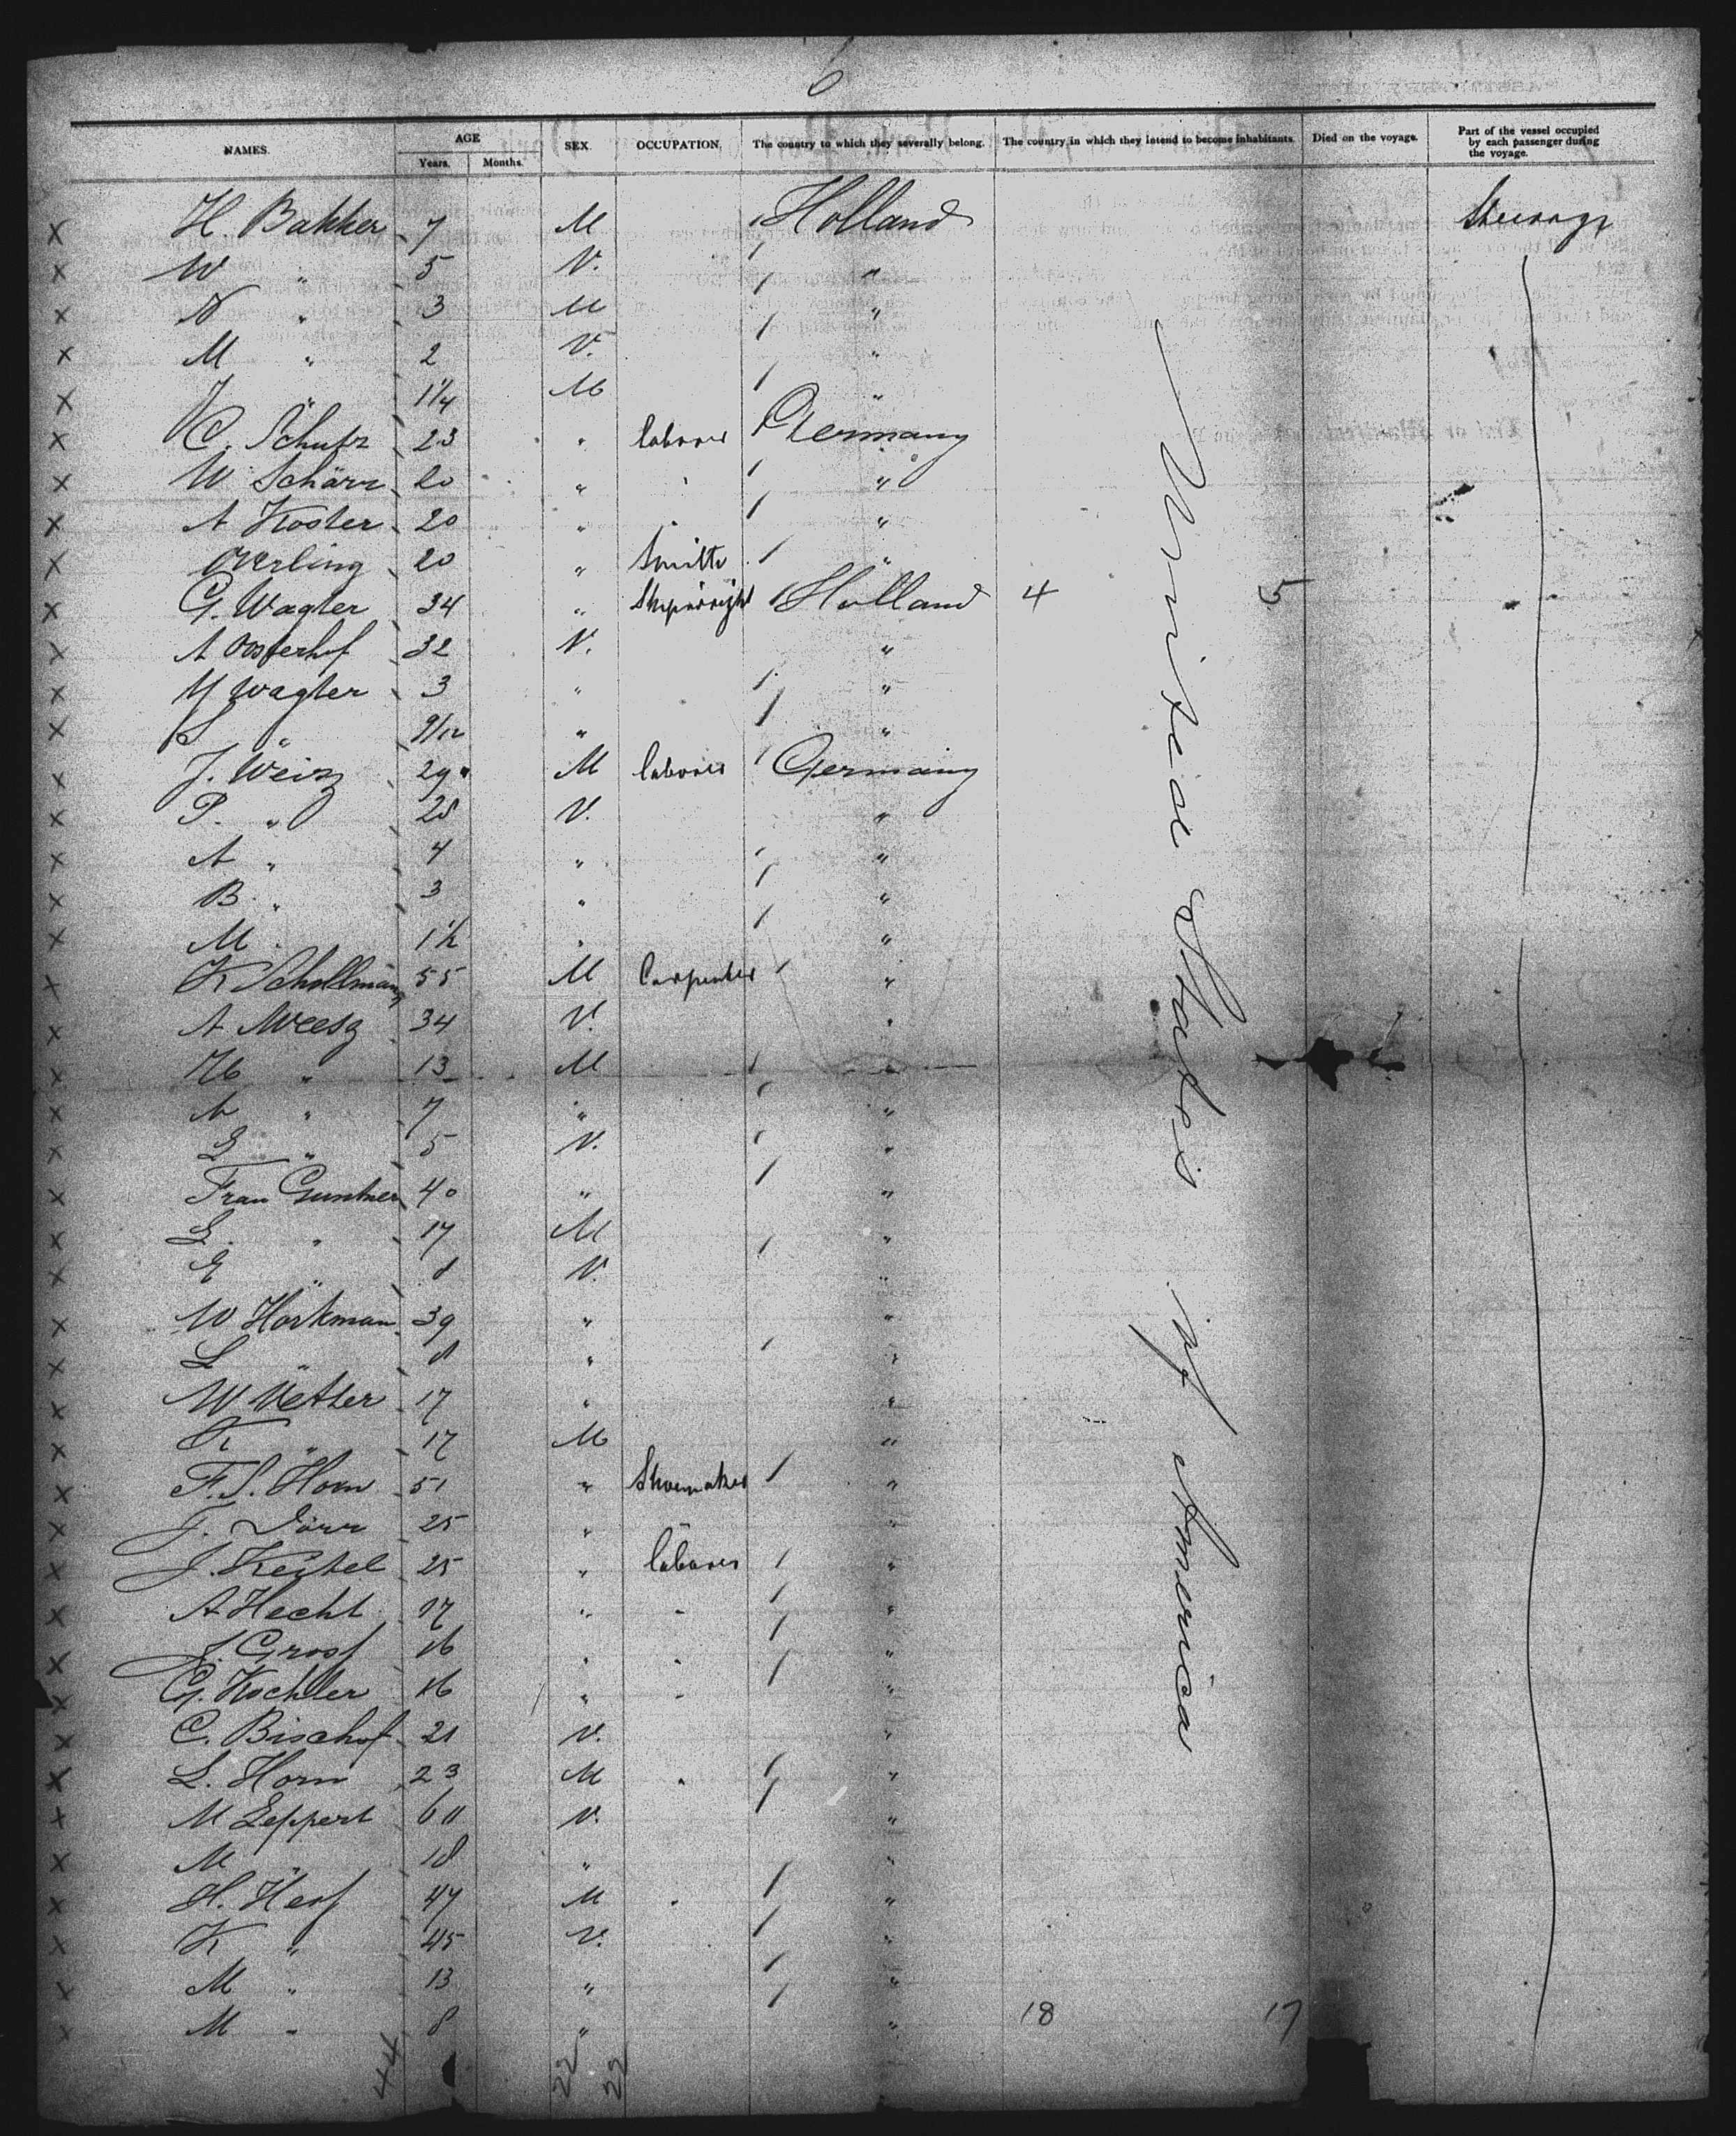 6
NAMES. AGE SEX. OCCUPATION. The country to which they severally belong. The country in which they intend to become inhabitants. Died on the voyage. Part of the vessel occupied by each passenger during the voyage.
Years. Months.
H. Bakker 7 M Holland Steerage
W " 5 V. "
N " 3 M "
M " 2 V. "
J " 1 1/4 M "
C. Schutz 23 " laborer Germany
W Schärr 20 " "
A Koster 20 " "
Overling 20 " Smith "
G. Wagter 34 " Shipwright Holland 4 5
A Oosterhof 32 V. "
Y Wagter 3 " "
S " 9/12 " "
J. Weisz 29 M laborer Germany
P. " 28 V. "
A " 4 " "
B. " 3 " "
M " 1 1/2 " "
K Schollmann 55 M Carpenter "
A Meesz 34 V. "
H " 13 M "
A " 7 " "
L " 5 V. "
Frau Guntner 40 " "
L. " 17 M "
E " 8 V. "
W Horkman 39 " "
L " 8 " "
W Vetter 17 " "
K " 17 M "
F. S. Horn 51 " Shoemaker "
J. Dörr 25 " "
J. Keitel 25 " laborer "
A Hecht 17 " " "
J. Grosf 16 " " "
G. Kochler 16 " " "
C. Bischof 21 V. "
L. Horn 23 M " "
M Leppert 60 V. "
M " 18 " "
H. Hesf 47 M " "
K " 45 V. "
M " 13 " "
M " 8 " " 18 17
United States of America
44 22 22